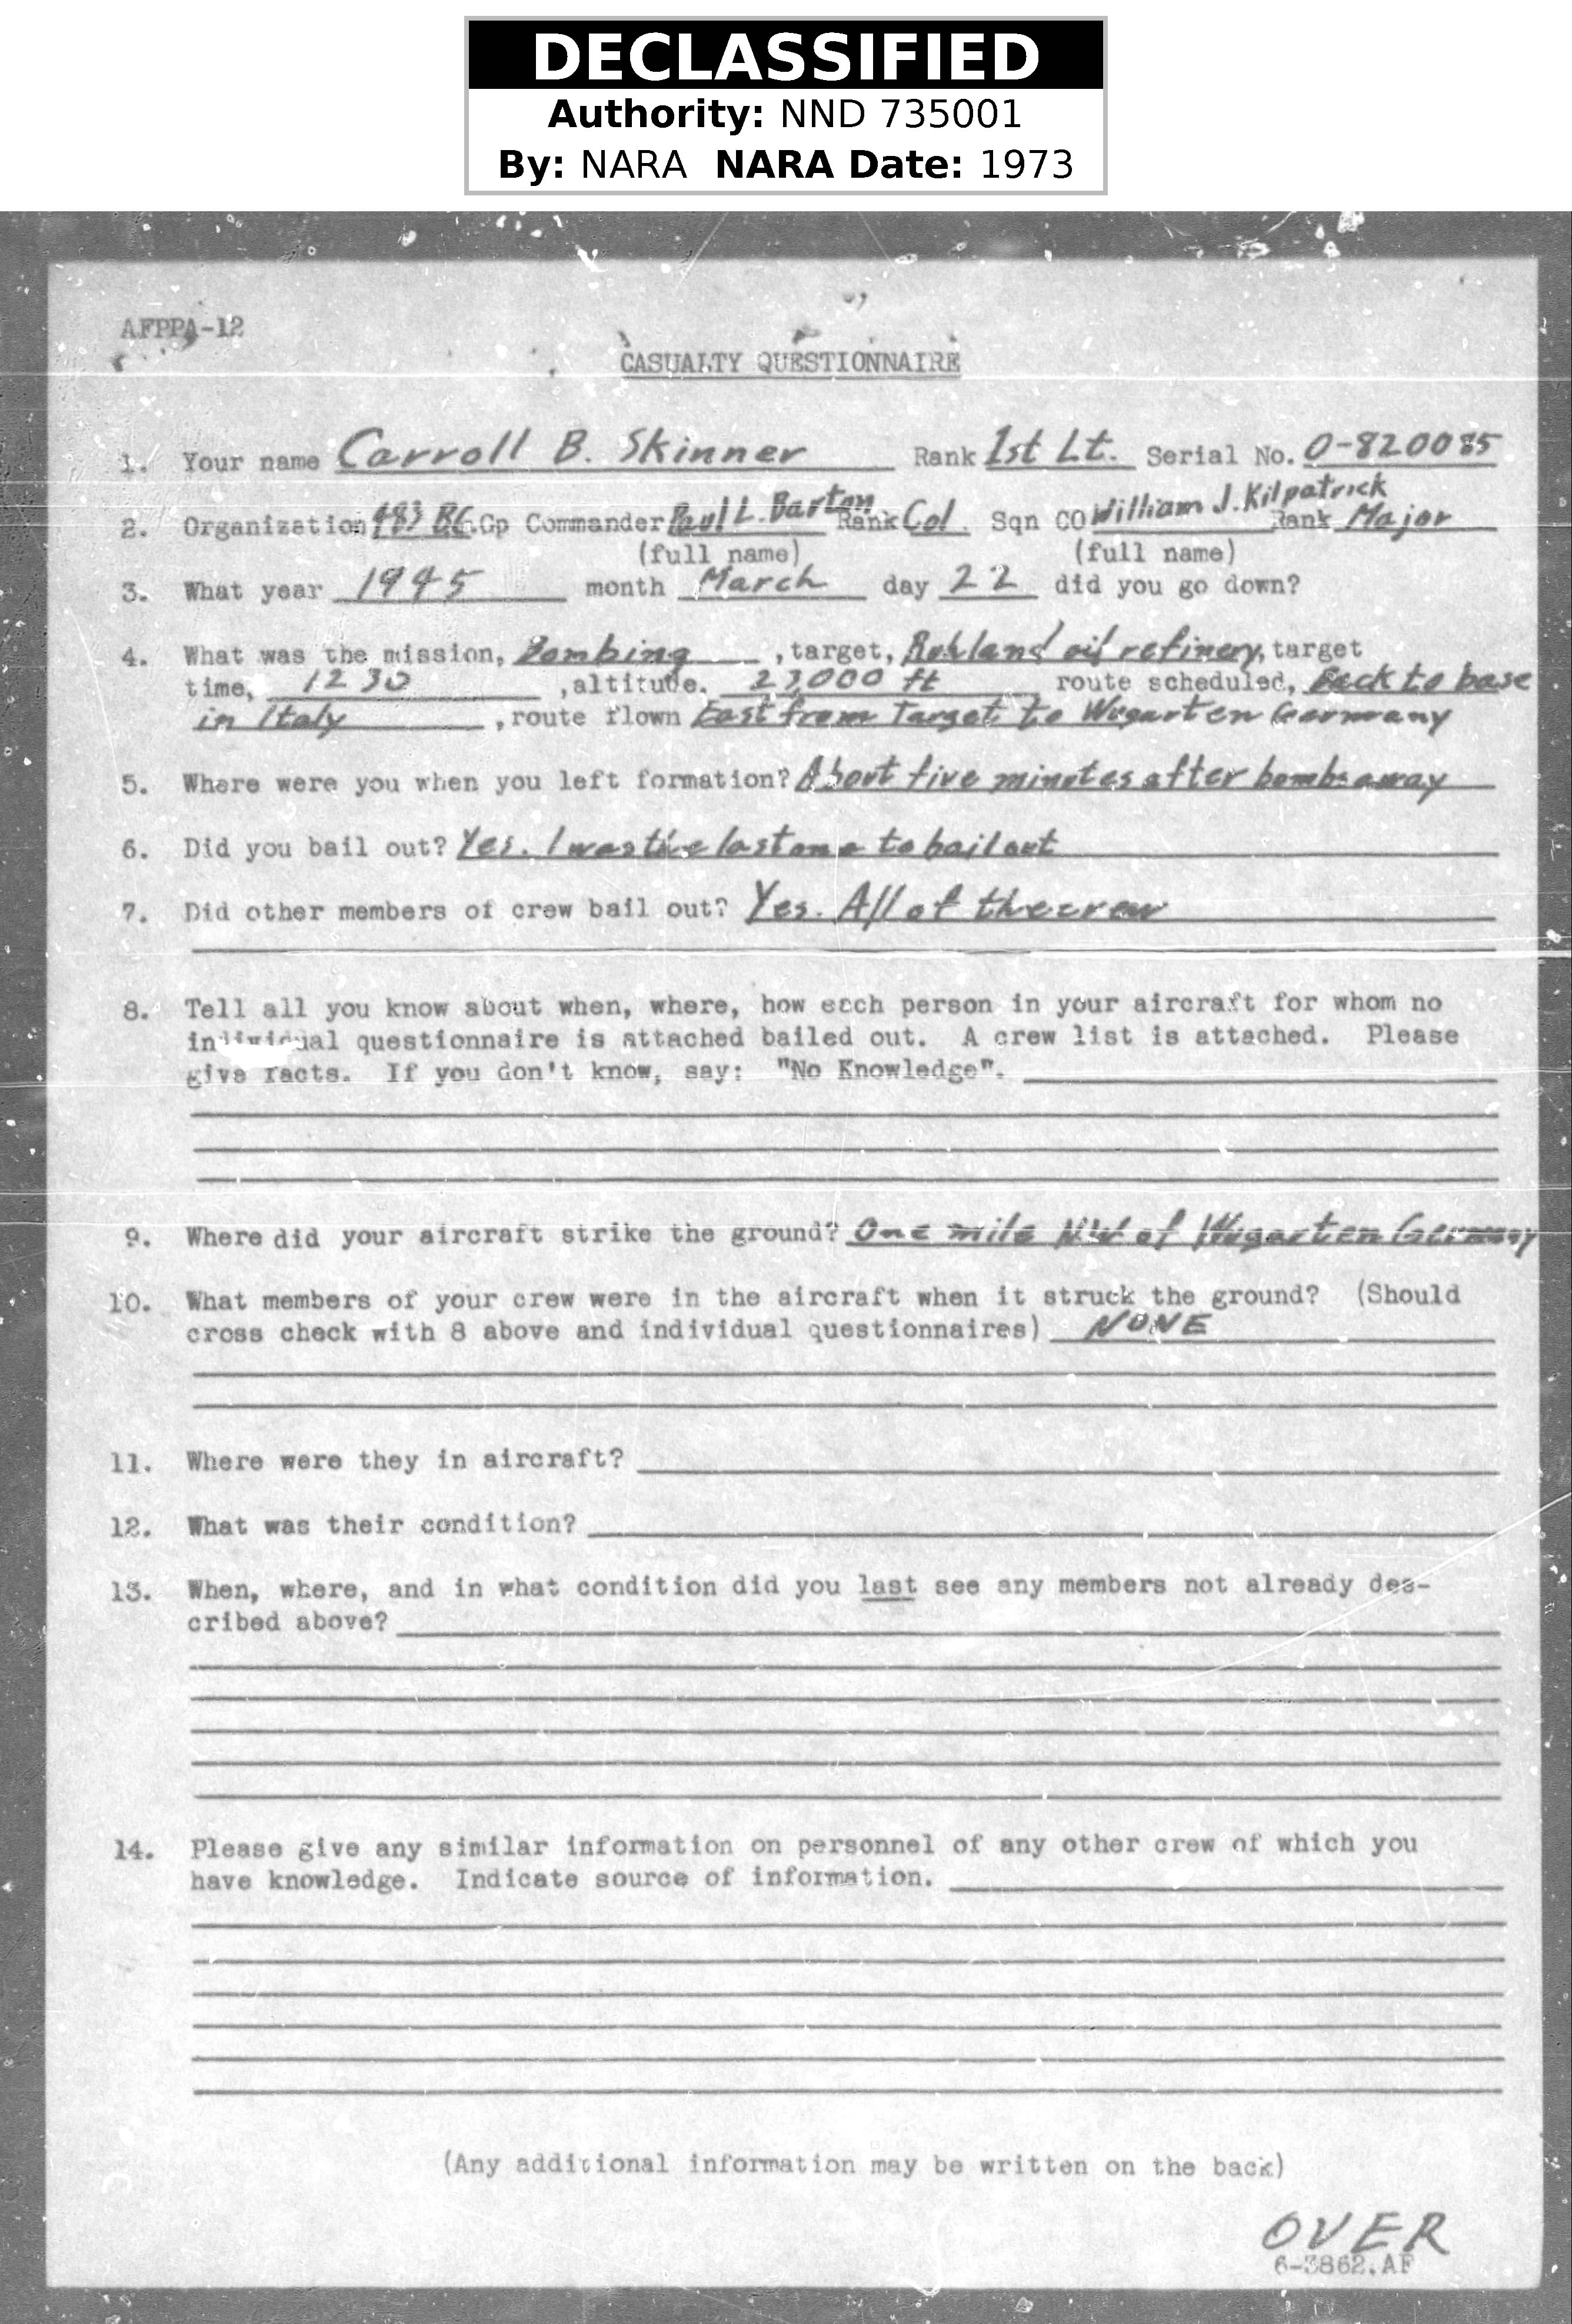 DECLASSIFIED
Authority: NND 735001
By: NARA NARA Date: 1973
AFPPA-12
CASUALTY QUESTIONNAIRE
1. Your name Carroll B. Skinner Rank 1st Lt. Serial No. O-820085
2. Organization 483 BG. Gp Commander Paul L. Barton Rank Col Sqn CO William J. Kilpatrick Rank Major
(full name) (full name)
3. What year 1945 month March day 22 did you go down?
4. What was the mission, Bombing, target, Ruhland oil refinery, target
time, 1230, altitude. 23,000 ft route scheduled, Back to base
in Italy, route flown East from Target to Wugarten Germany
5. Where were you when you left formation? About five minutes after bombs away
6. Did you bail out? Yes. I was the last one to bail out
7. Did other members of crew bail out? Yes. All of the crew
8. Tell all you know about when, where, how each person in your aircraft for whom no
individual questionnaire is attached bailed out. A crew list is attached. Please
give facts. If you don't know, say: "No Knowledge".
9. Where did your aircraft strike the ground? One mile NW of Wugarten Germany
10. What members of your crew were in the aircraft when it struck the ground? (Should
cross check with 8 above and individual questionnaires) NONE
11. Where were they in aircraft?
12. What was their condition?
13. When, where, and in what condition did you last see any members not already des-
cribed above?
14. Please give any similar information on personnel of any other crew of which you
have knowledge. Indicate source of information.
(Any additional information may be written on the back)
OVER
6-3862,AF